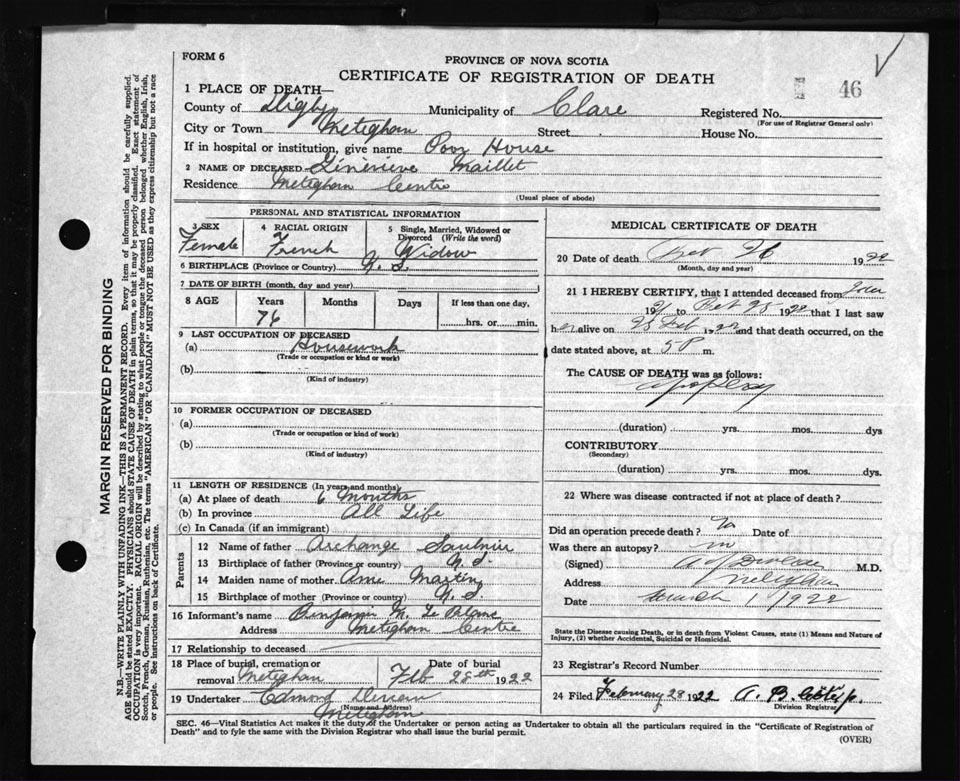 FORM 6
PROVINCE OF NOVA SCOTIA
CERTIFICATE OF REGISTRATION OF DEATH
46
1 PLACE OF DEATH—
County of Digby Municipality of Clare Registered No.
(For use of Registrar General only)
City or Town Meteghan Street House No.
If in hospital or institution, give name Poor House
2 NAME OF DECEASED Génèvieve Maillet
Residence Meteghan Centre
(Usual place of abode)
PERSONAL AND STATISTICAL INFORMATION
3 SEX
Female
4 RACIAL ORIGIN
French
5 Single, Married, Widowed or Divorced (Write the word)
Widow
6 BIRTHPLACE (Province or Country) N. S.
7 DATE OF BIRTH (month, day and year)
8 AGE Years Months Days If less than one day,
76 hrs. or min.
9 LAST OCCUPATION OF DECEASED
(a) Housework
(Trade or occupation or kind or work)
(b)
(Kind of industry)
10 FORMER OCCUPATION OF DECEASED
(a)
(Trade or occupation or kind of work)
(b)
(Kind of industry)
11 LENGTH OF RESIDENCE (In years and months)
(a) At place of death 6 Months
(b) In province All Life
(c) In Canada (if an immigrant)
Parents
12 Name of father Archange Saulnier
13 Birthplace of father (Province or country) N. S.
14 Maiden name of mother Ame Martin
15 Birthplace of mother (Province or country) N. S.
16 Informant's name Benjamin
Address Meteghan Centre
17 Relationship to deceased
18 Place of burial, cremation or removal Meteghan
Date of burial
Feb 28th 1922
19 Undertaker Edmond Deveau
(Name and Address)
Meteghan
MEDICAL CERTIFICATE OF DEATH
20 Date of death 1922
(Month, day and year)
21 I HEREBY CERTIFY, that I attended deceased from
1921 to Feb 25 1922 that I last saw
her alive on 25 Feb 1922 and that death occurred, on the
date stated above, at 5 P m.
The CAUSE OF DEATH was as follows:
Apoplexy
(duration) yrs. mos. dys
CONTRIBUTORY
(Secondary)
(duration) yrs. mos. dys.
22 Where was disease contracted if not at place of death?
Did an operation precede death? No Date of
Was there an autopsy? no
(Signed) M.D.
Address Meteghan
Date March 1 / 1922
State the Disease causing Death, or in death from Violent Causes, state (1) Means and Nature of
Injury, (2) whether Accidental, Suicidal or Homicidal.
23 Registrar's Record Number
24 Filed February 28 1922 A. B.
Division Registrar
SEC. 46—Vital Statistics Act makes it the duty of the Undertaker or person acting as Undertaker to obtain all the particulars required in the "Certificate of Registration of
Death" and to fyle the same with the Division Registrar who shall issue the burial permit.
(OVER)
MARGIN RESERVED FOR BINDING
N.B.—WRITE PLAINLY WITH UNFADING INK—THIS IS A PERMANENT RECORD. Every item of information should be carefully supplied.
AGE should be stated EXACTLY. PHYSICIANS should STATE CAUSE OF DEATH in plain terms, so that it may be properly classified. Exact statement of
OCCUPATION is very important. RACIAL ORIGIN will be described by stating to what people or tongue the deceased person belonged whether English, Irish,
Scotch, French, German, Russian, Ruthenian, etc. The terms "AMERICAN" OR "CANADIAN" MUST NOT BE USED as they express citizenship but not a race
or people. See instructions on back of Certificate.